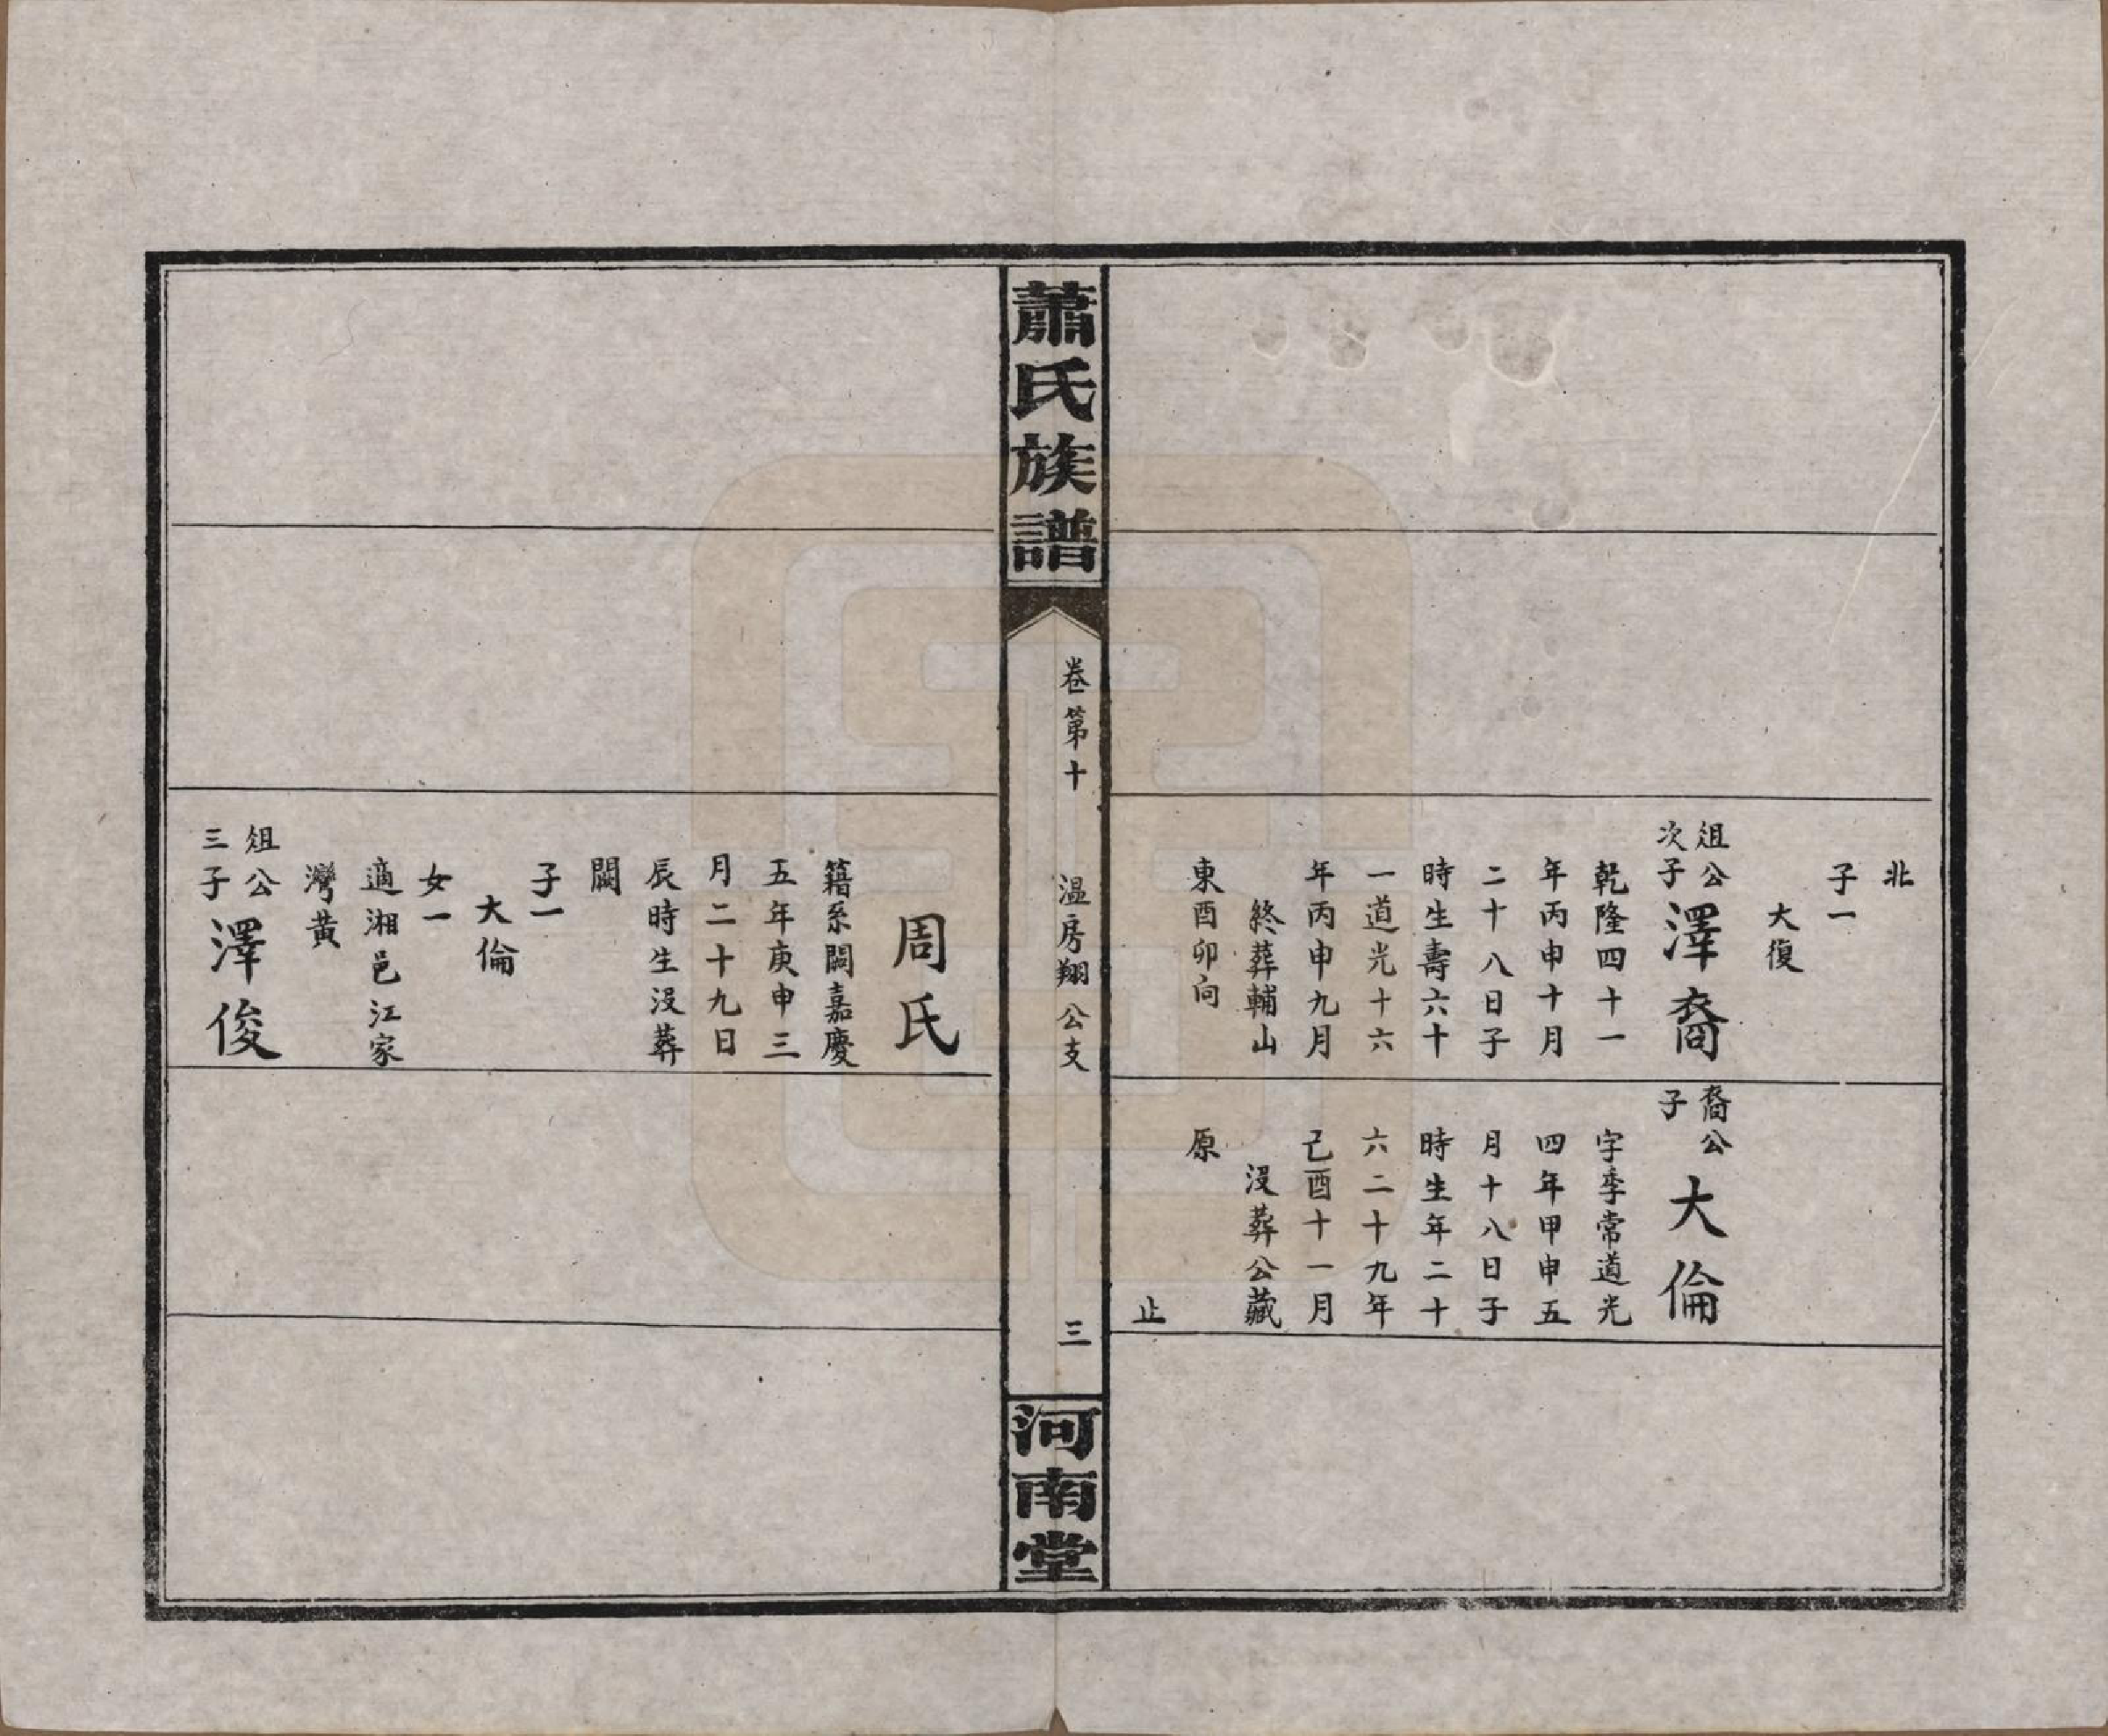 北
子一
大復
俎公
次子
澤裔
乾隆四十一
年丙申十月
二十八日子
時生壽六十
一道光十六
年丙申九月
終葬輔山
東酉卯向
裔公
子
大倫
字季常道光
四年甲申五
月十八日子
時生年二十
六二十九年
己酉十一月
沒葬公藏
原
止
蕭氏族譜
卷第十
温房翔公支
三
河南堂
周氏
籍系闕嘉慶
五年庚申三
月二十九日
辰時生沒葬
闕
子一
大倫
女一
適湘邑江家
灣黄
俎公
三子
澤俊